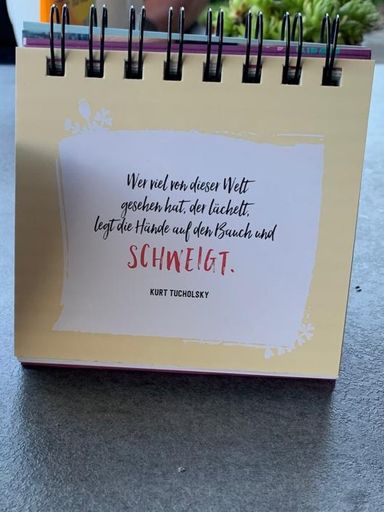 Wer viel von dieser Welt
gesehen hat, der lächelt,
legt die Hände auf den Bauch und
SCHWEIGT.
KURT TUCHOLSKY